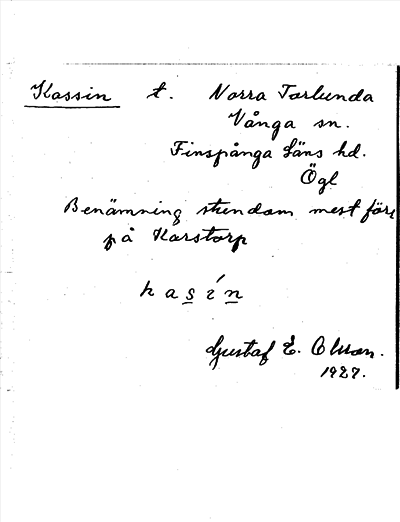 Kassin t. Norra Torlunda
Vånga sn.
Finspånga läns hd.
Ögl
Benämning stundom mest förr
på Karstorp
k a s í n
Gustaf E. Olsson.
1927.